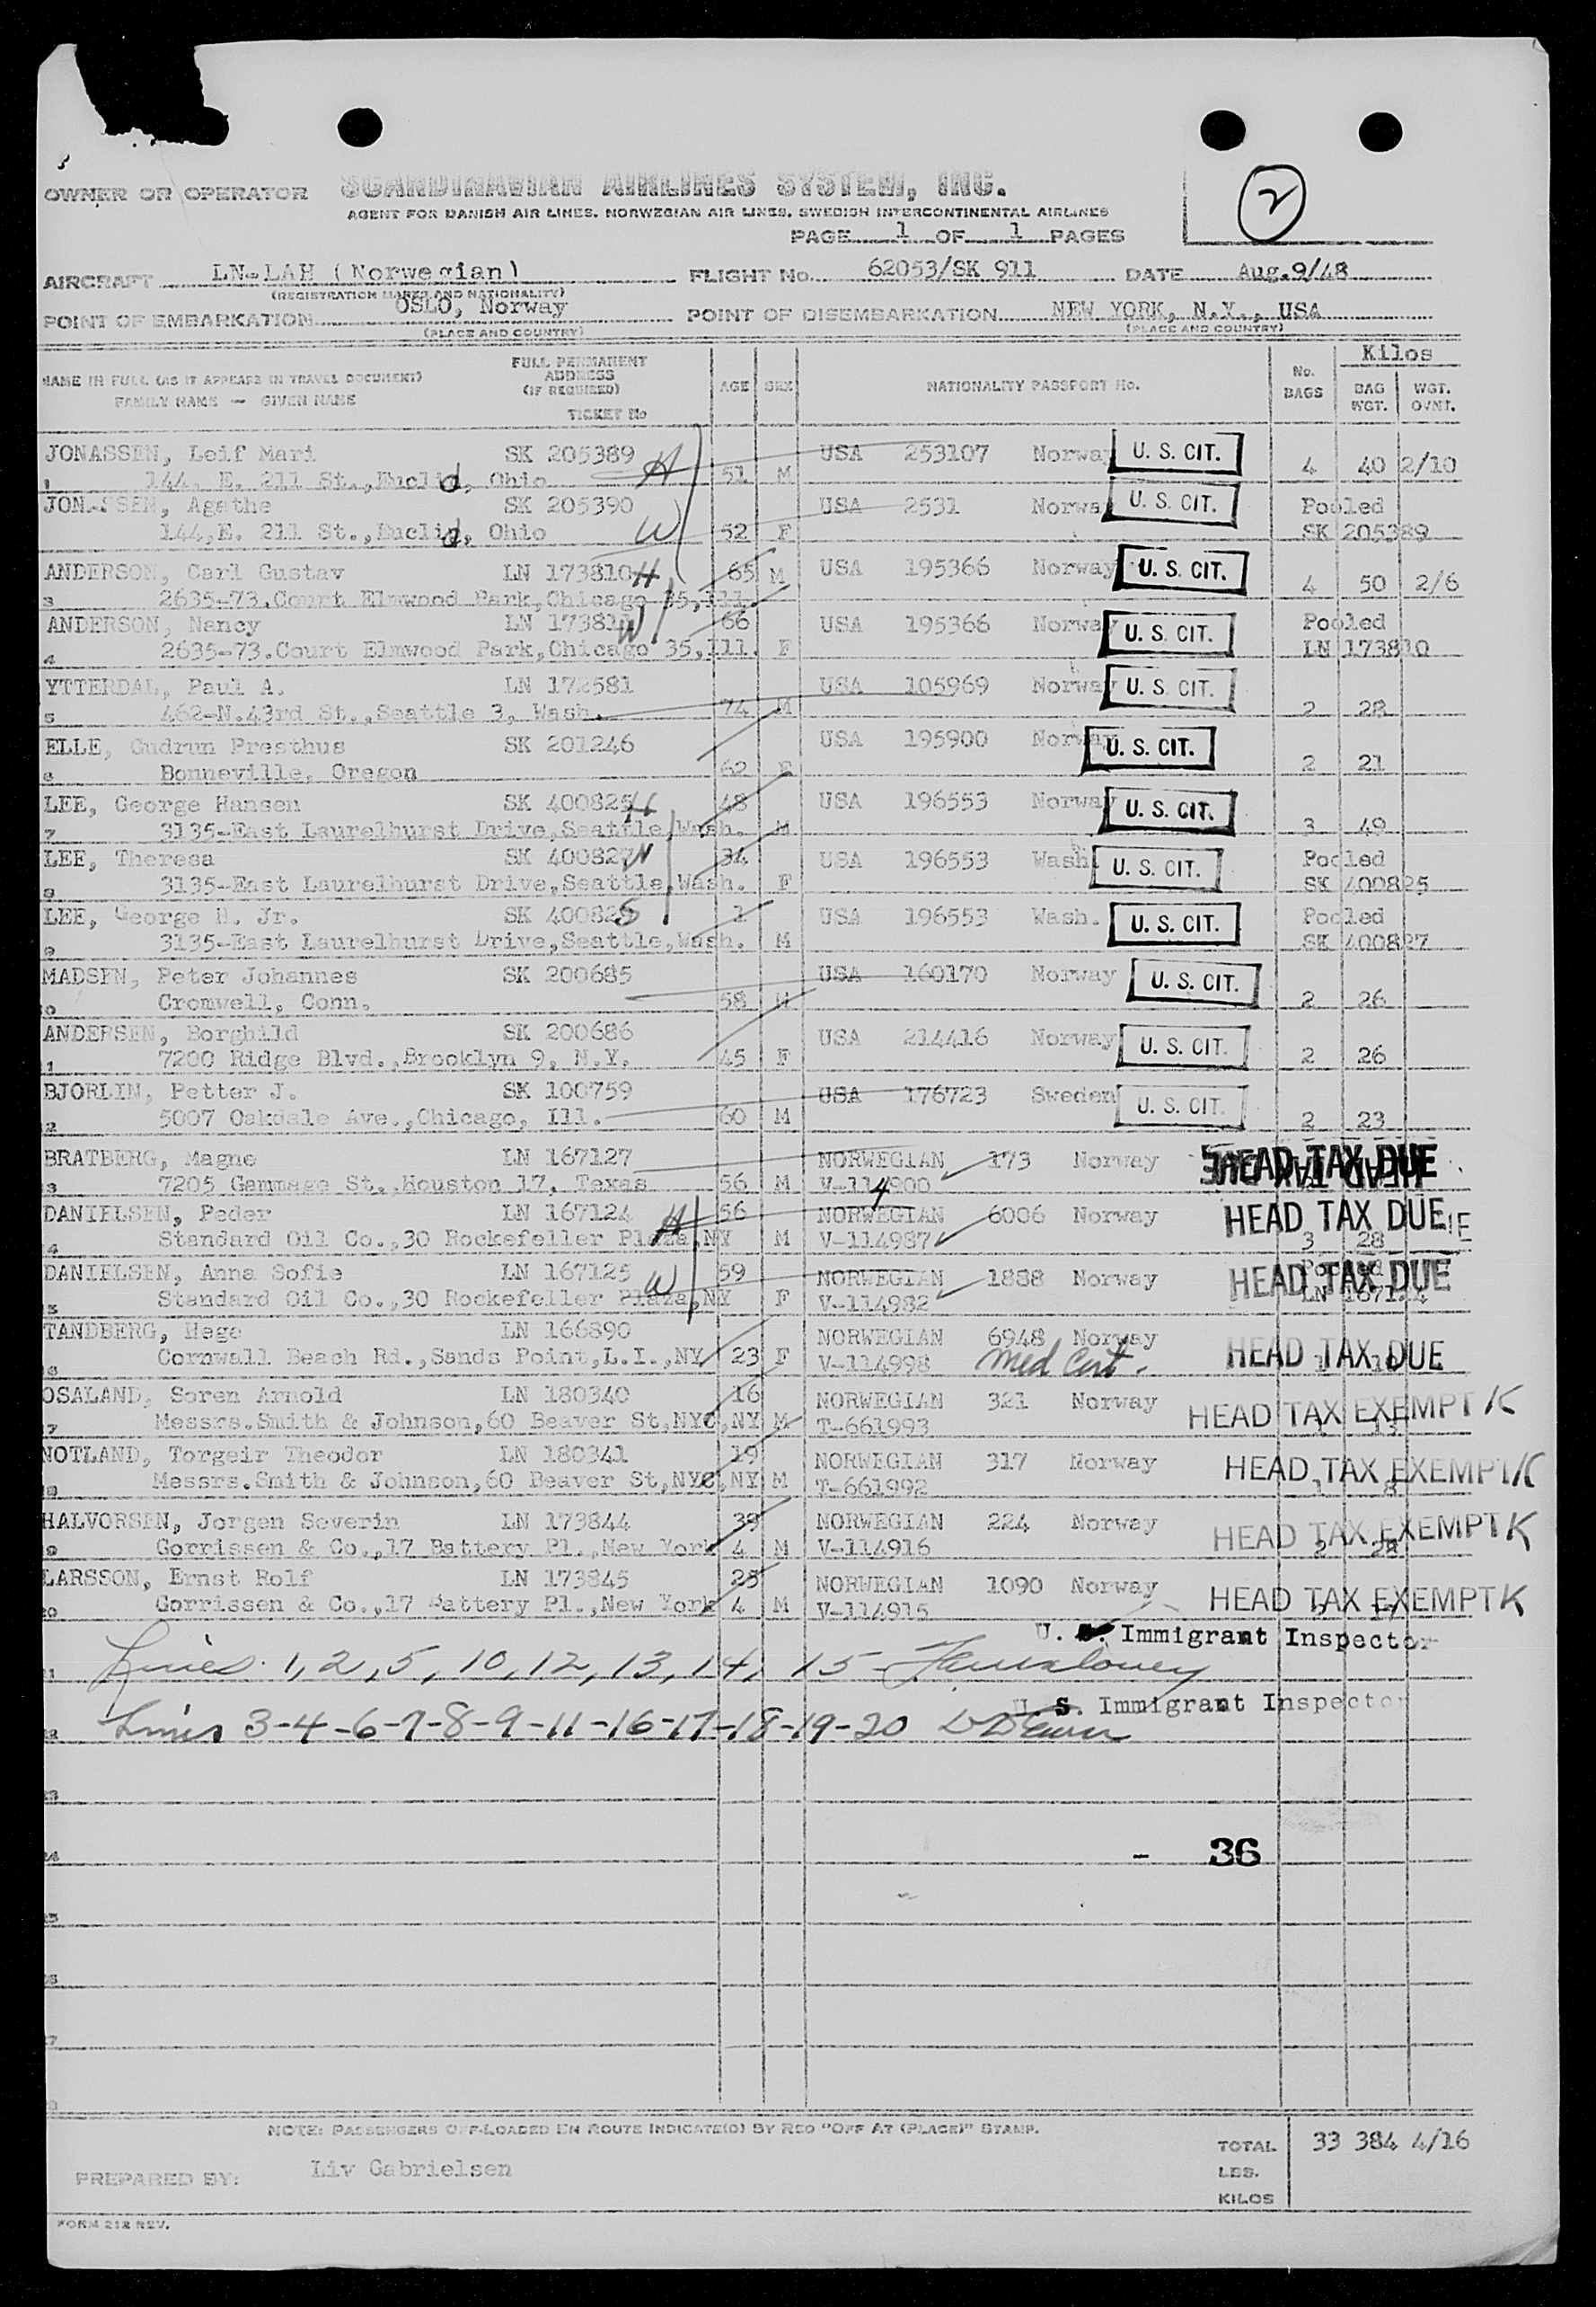 OWNER OR OPERATOR SCANDINAVIAN AIRLINES SYSTEM, INC.
AGENT FOR DANISH AIR LINES. NORWEGIAN AIR LINES. SWEDISH INTERCONTINENTAL AIRLINES
2
PAGE 1 OF 1 PAGES
AIRCRAFT LN-LAH (Norwegian) FLIGHT No. 62053/SK 911 DATE Aug.9/48
(REGISTRATION MARKS AND NATIONALITY)
POINT OF EMBARKATION OSLO, Norway POINT OF DISEMBARKATION NEW YORK, N.Y., USA
(PLACE AND COUNTRY) (PLACE AND COUNTRY)
NAME IN FULL (AS IT APPEARS IN TRAVEL DOCUMENT) FAMILY NAME — GIVEN NAME FULL PERMANENT ADDRESS (IF REQUIRED) TICKET No AGE SEX NATIONALITY PASSPORT No. No. BAGS Kilos BAG WGT. WGT. OVNT.
JONASSEN, Leif Mari SK 205389 H USA 253107 Norway U. S. CIT.
1 144, E. 211 St.,Euclid, Ohio 51 M 4 40 2/10
JONASSEN, Agathe SK 205390 USA 2531 Norway U. S. CIT. Pooled
144,E. 211 St.,Euclid, Ohio W 52 F SK 205389
ANDERSON, Carl Gustav LN 173810 H 65 M USA 195366 Norway U. S. CIT.
3 2635-73.Court Elmwood Park,Chicago 35,Ill. 4 50 2/6
ANDERSON, Nancy LN 173811 W 66 USA 195366 Norway U. S. CIT. Pooled
4 2635-73.Court Elmwood Park,Chicago 35,Ill. F LN 173810
YTTERDAL, Paul A. LN 172581 USA 105969 Norway U. S. CIT.
5 462-N.43rd St.,Seattle 3, Wash. 74 M 2 28
ELLE, Gudrun Presthus SK 201246 USA 195900 Norway U. S. CIT.
6 Bonneville, Oregon 62 F 2 21
LEE, George Hansen SK 400825 H 48 USA 196553 Norway U. S. CIT.
7 3135-East Laurelhurst Drive,Seattle,Wash. M 3 49
LEE, Theresa SK 400827 W 34 USA 196553 Wash. U. S. CIT. Pooled
3135-East Laurelhurst Drive,Seattle,Wash. F SK 400825
LEE, George H. Jr. SK 400825 S 1 USA 196553 Wash. U. S. CIT. Pooled
9 3135-East Laurelhurst Drive,Seattle,Wash. M SK 400827
MADSEN, Peter Johannes SK 200685 USA 160170 Norway U. S. CIT.
0 Cromwell, Conn. 58 M 2 26
ANDERSEN, Borghild SK 200686 USA 214416 Norway U. S. CIT.
1 7200 Ridge Blvd.,Brooklyn 9, N.Y. 45 F 2 26
BJORLIN, Petter J. SK 100759 USA 176723 Sweden U. S. CIT.
2 5007 Oakdale Ave.,Chicago, Ill. 60 M 2 23
BRATBERG, Magne LN 167127 NORWEGIAN 173 Norway HEAD TAX DUE
3 7205 Gammage St.,Houston 17, Texas 56 M V-114900
DANIELSEN, Peder LN 167124 H 56 NORWEGIAN 6006 Norway HEAD TAX DUE
4 Standard Oil Co.,30 Rockefeller Plaza,NY M V-114987 3 28
DANIELSEN, Anna Sofie LN 167125 W 59 NORWEGIAN 1888 Norway HEAD TAX DUE Pooled
5 Standard Oil Co.,30 Rockefeller Plaza,NY F V-114982 LN 167124
TANDBERG, Hege LN 166890 NORWEGIAN 6948 Norway
6 Cornwall Beach Rd.,Sands Point,L.I.,NY 23 F V-114998 Med Cert. HEAD TAX DUE
OSALAND, Soren Arnold LN 180340 16 NORWEGIAN 321 Norway HEAD TAX EXEMPT K
7 Messrs.Smith & Johnson,60 Beaver St,NYC,NY M T-661993
NOTLAND, Torgeir Theodor LN 180341 19 NORWEGIAN 317 Norway HEAD TAX EXEMPT K
8 Messrs.Smith & Johnson,60 Beaver St,NYC,NY M T-661992 1 8
HALVORSEN, Jorgen Severin LN 173844 39 NORWEGIAN 224 Norway HEAD TAX EXEMPT K
9 Gorrissen & Co.,17 Battery Pl.,New York 4 M V-114916 2 28
LARSSON, Ernst Rolf LN 173845 25 NORWEGIAN 1090 Norway HEAD TAX EXEMPT K
20 Gorrissen & Co.,17 Battery Pl.,New York 4 M V-114915
U. S. Immigrant Inspector
Lines 1, 2, 5, 10, 12, 13, 14, 15
U. S. Immigrant Inspector
Lines 3-4-6-7-8-9-11-16-17-18-19-20
- 36
NOTE: PASSENGERS OFF-LOADED EN ROUTE INDICATE(D) BY RED "OFF AT (PLACE)" STAMP.
TOTAL 33 384 4/16
PREPARED BY: Liv Gabrielsen LBS.
KILOS
FORM 212 REV.